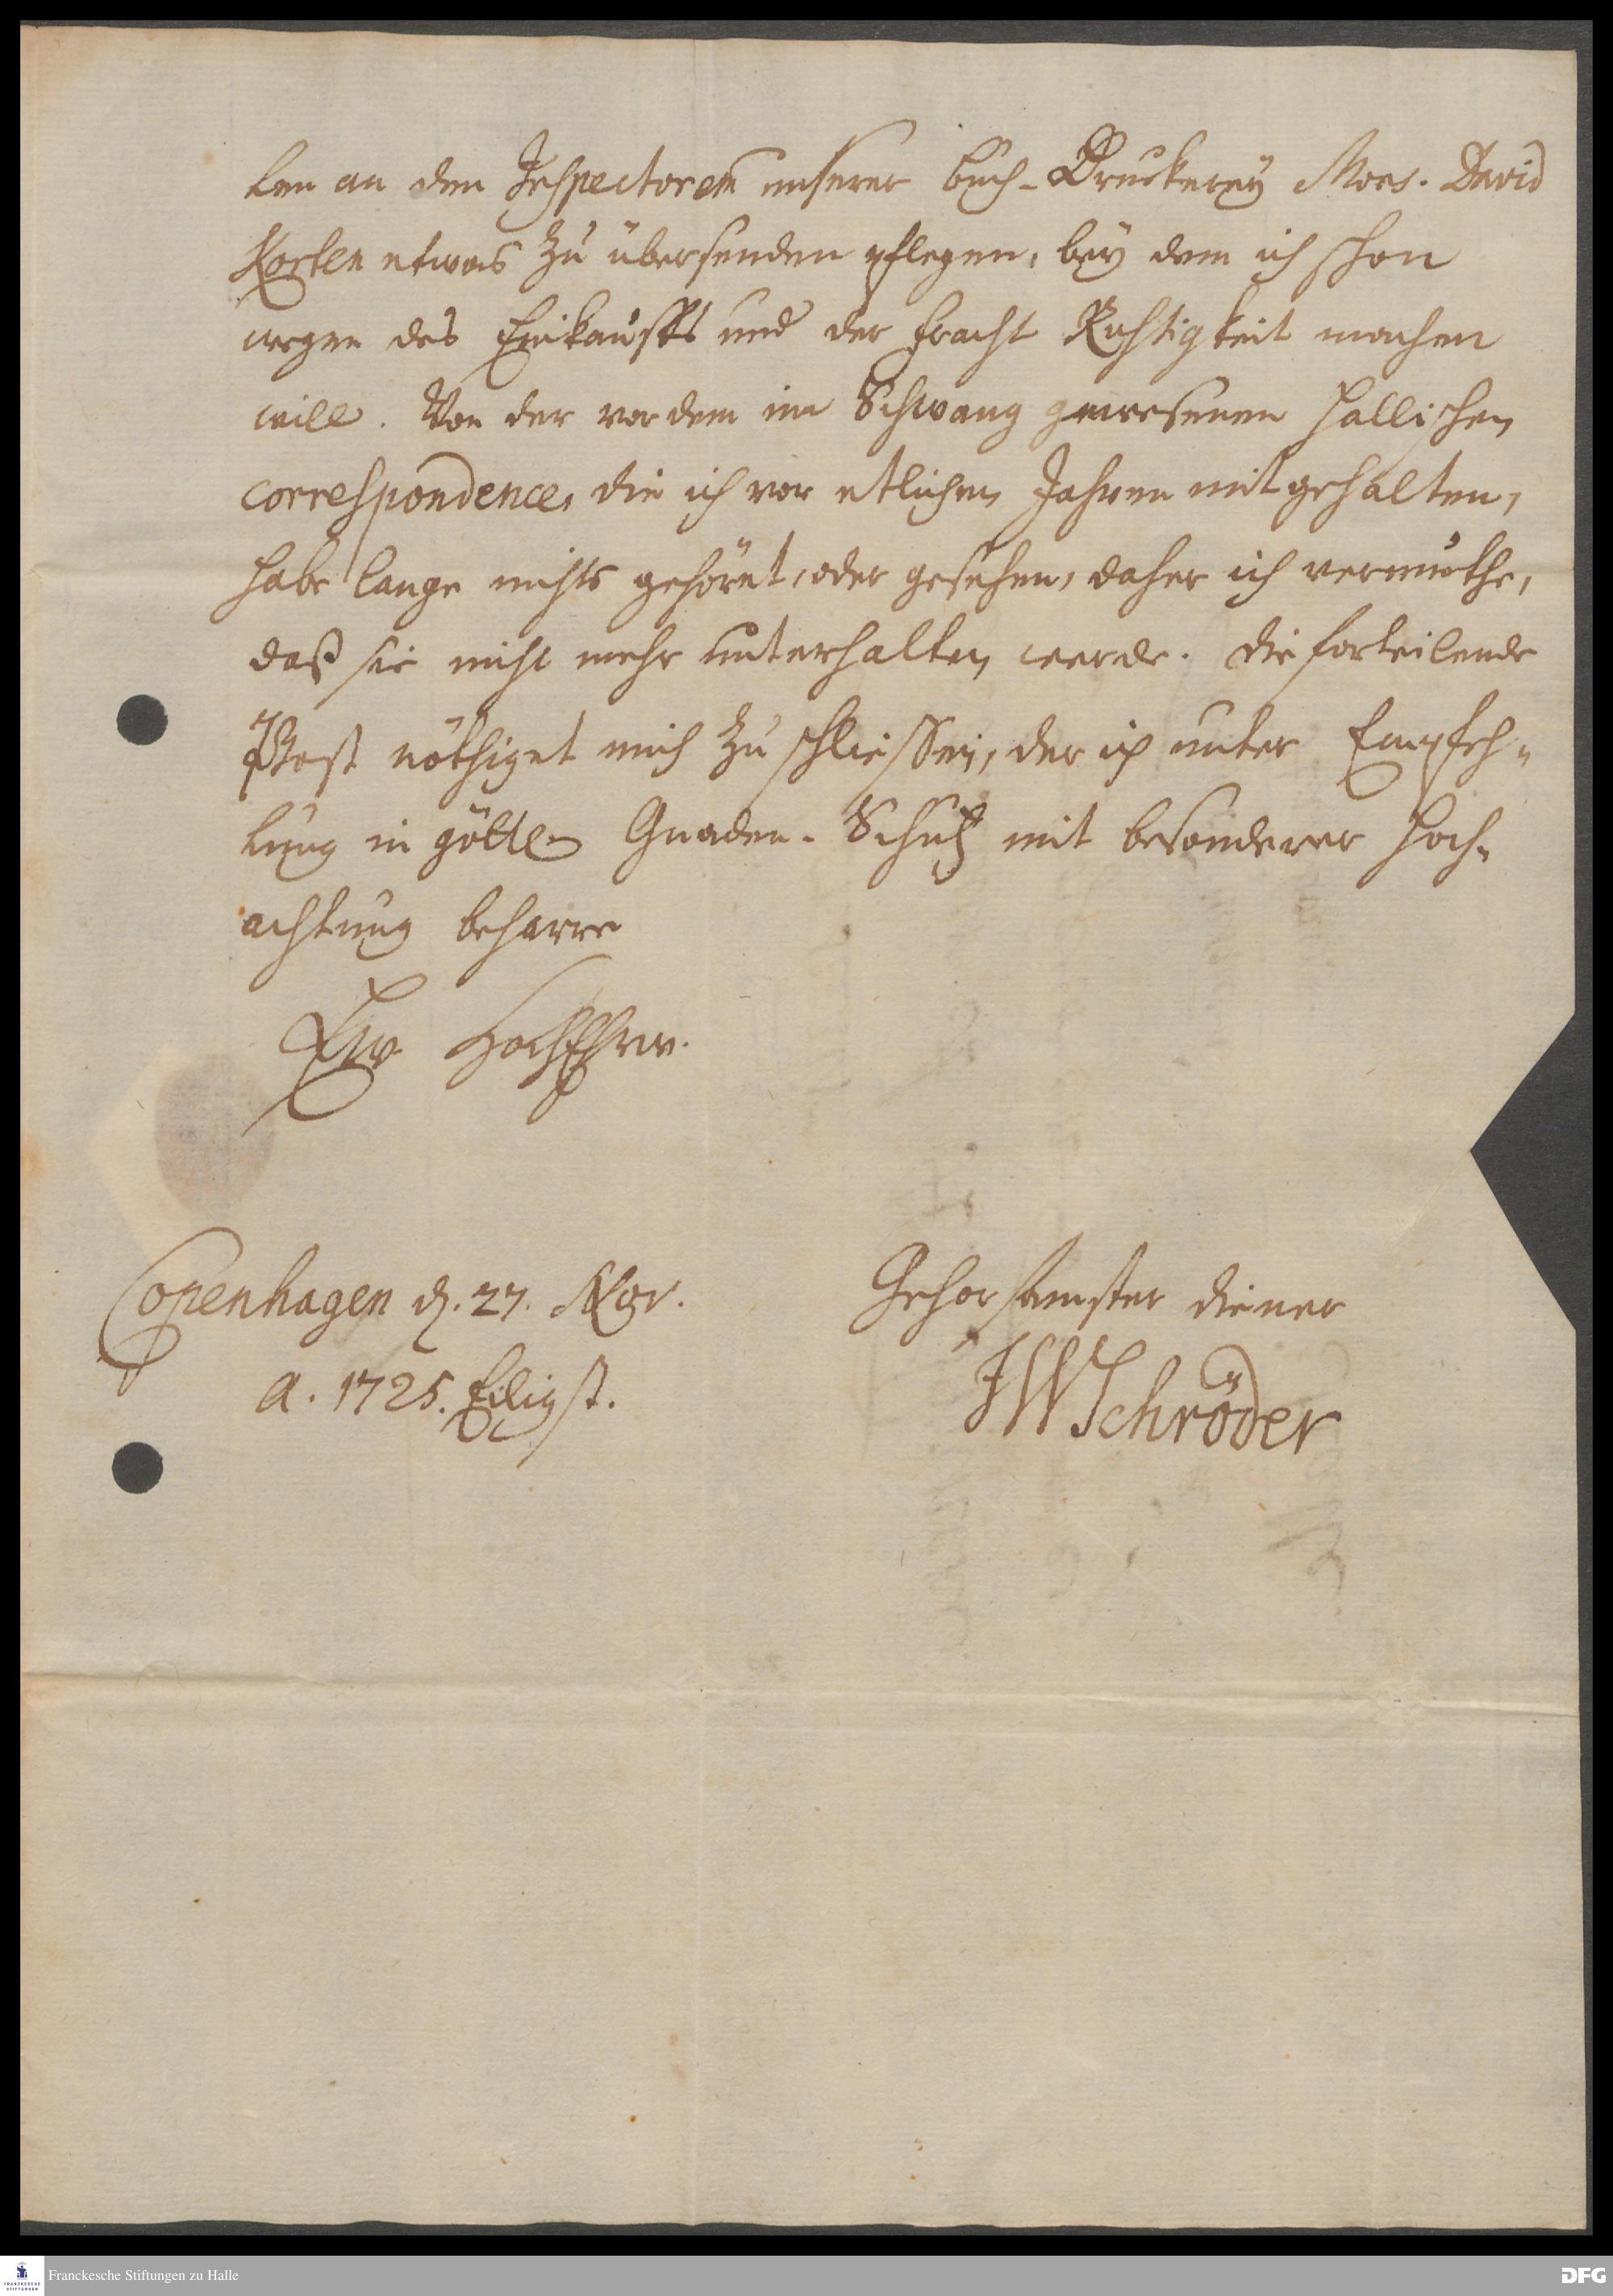 len an den Inspectorem unserer buch-Druckerey Mons. David
Korten etwas zu übersenden pflegen, bey dem ich schon
wegen des Einkauffs und der fracht Richtigkeit machen
will. Von der vordem im Schwang gewesenen Hallischen
correspondence, die ich vor etlichen Jahren mit gehalten,
habe lange nichts gehöret, oder gesehen, daher ich vermuthe,
daß sie nicht mehr unterhalten werde. die forteilende
Post nöthiget mich zu schliessen, der ich unter Empfeh-
lung in göttl Gnaden-Schutz mit besonderer Hoch-
achtung beharre
Ew. HochEhrw.
Copenhagen d. 27. Nov.
a. 1725. Eiligst.
Gehorsamster diener
JWSchröder
FRANCKESCHE
STIFTUNGEN
Franckesche Stiftungen zu Halle
DFG